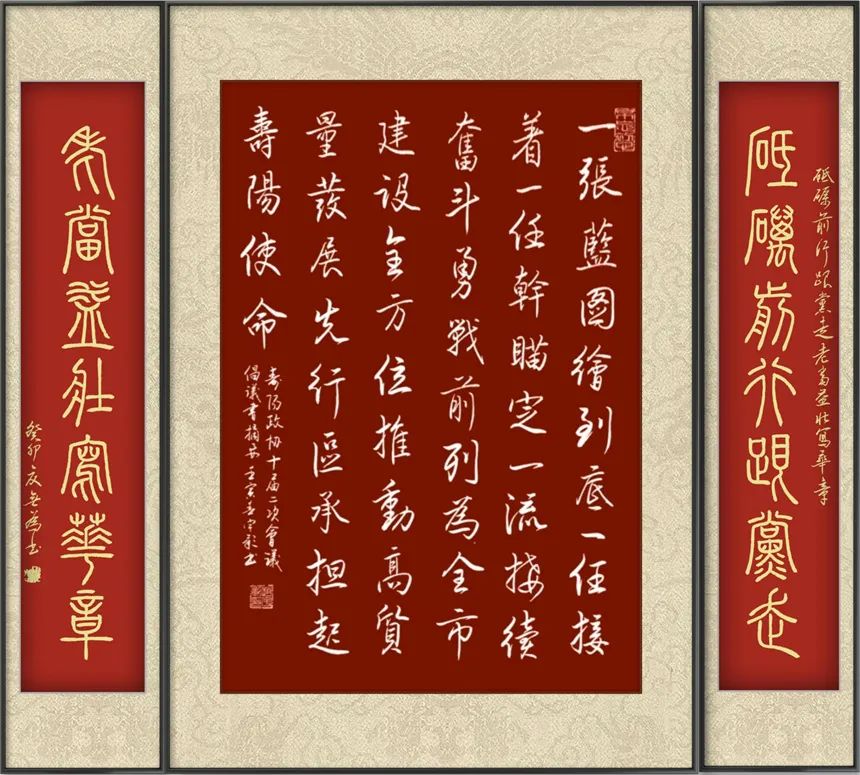 砥礪前行跟黨走老當益壯寫華章
砥礪前行跟黨走
一張藍圖繪到底一任接
着一任幹瞄定一流接續
奮斗勇戰前列為全市
建设全方位推動高質
量發展先行區承担起
壽陽使命
寿阳政协十届二次會議
倡議書摘录壬寅
老當益壯寫華章
癸卯